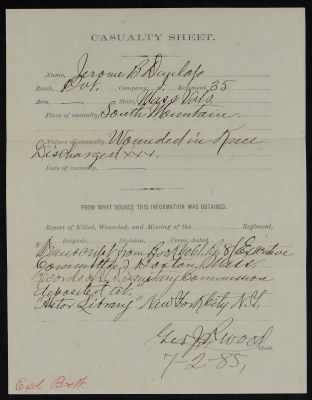 CASUALTY SHEET.
Name, Jerome B Dunlap
Rank, Pvt. Company, Regiment, 35
Arm, State, Mass Vols.
Place of casualty, South Mountain.
Nature of casualty, Wounded in Knee
Discharged
Date of casualty,
FROM WHAT SOURCE THIS INFORMATION WAS OBTAINED.
Report of Killed, Wounded, and Missing of the Regiment,
Brigade, Division, Corps, dated
from Executive
Committee Boston, Mass
Records Sanitary Commission
deposited at
"Astor Library" New York City N.Y.
wood
Clerk.
7-2-85,